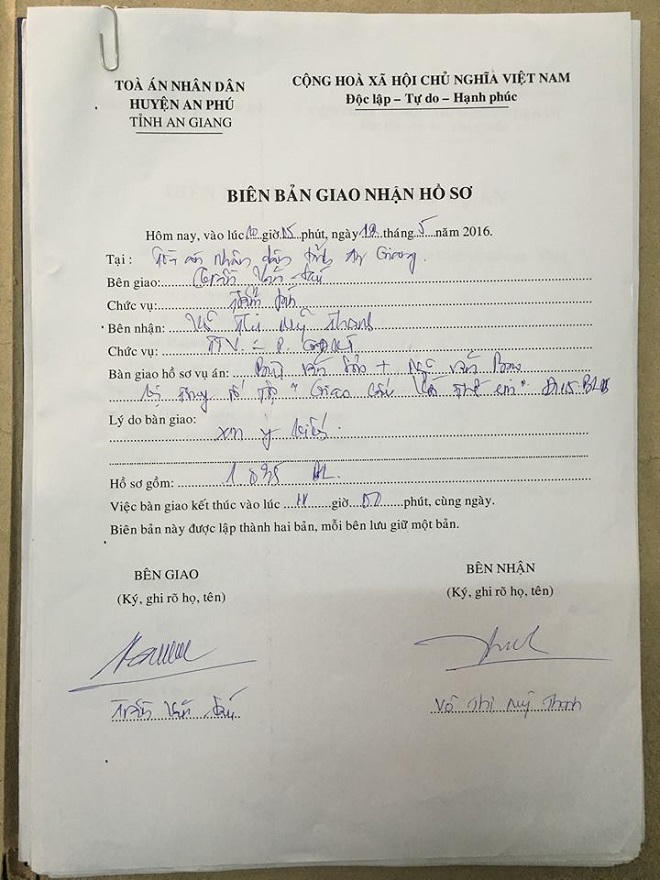 TOÀ ÁN NHÂN DÂN
HUYỆN AN PHÚ
TỈNH AN GIANG
CỘNG HOÀ XÃ HỘI CHỦ NGHĨA VIỆT NAM
Độc lập – Tự do – Hạnh phúc
BIÊN BẢN GIAO NHẬN HỒ SƠ
Hôm nay, vào lúc 10 giờ 05 phút, ngày tháng 5 năm 2016.
Tại : Tòa án nhân dân tỉnh An Giang.
Bên giao: Trần Văn
Chức vụ: Thẩm
Bên nhận: Võ Thị Mỹ Thanh
Chức vụ: TTV
Bàn giao hồ sơ vụ án: Văn + Ngô Văn
tố tội " Giao cấu với trẻ em "
Lý do bàn giao:
xin ý kiến.
Hồ sơ gồm: BL.
Việc bàn giao kết thúc vào lúc giờ phút, cùng ngày.
Biên bản này được lập thành hai bản, mỗi bên lưu giữ một bản.
BÊN GIAO
(Ký, ghi rõ họ, tên)
Trần Văn
BÊN NHẬN
(Ký, ghi rõ họ, tên)
Võ Thị Mỹ Thanh